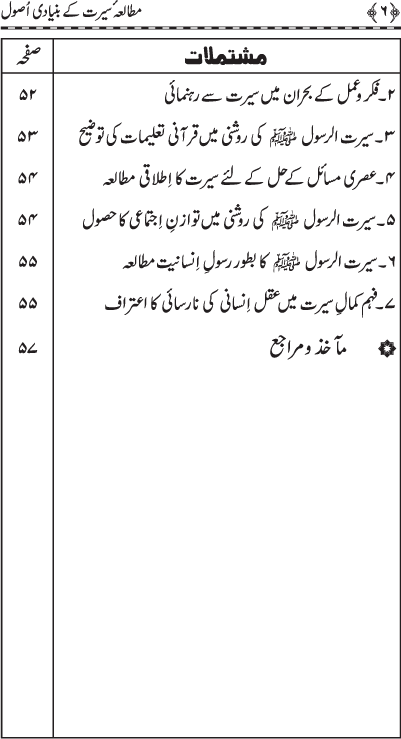 ﴿۶﴾ مطالعۂ سیرت کے بنیادی اُصول
مشتملات صفحہ
۲۔ فکر و عمل کے بحران میں سیرت سے رہنمائی ۵۲
۳۔ سیرت الرسول ﷺ کی روشنی میں قرآنی تعلیمات کی توضیح ۵۳
۴۔ عصری مسائل کے حل کے لئے سیرت کا اِطلاقی مطالعہ ۵۴
۵۔ سیرت الرسول ﷺ کی روشنی میں توازنِ اِجتماعی کا حصول ۵۴
۶۔ سیرت الرسول ﷺ کا بطور رسولِ اِنسانیت مطالعہ ۵۵
۷۔ فہم کمالِ سیرت میں عقل اِنسانی کی نارسائی کا اعتراف ۵۵
مآخذ و مراجع ۵۷